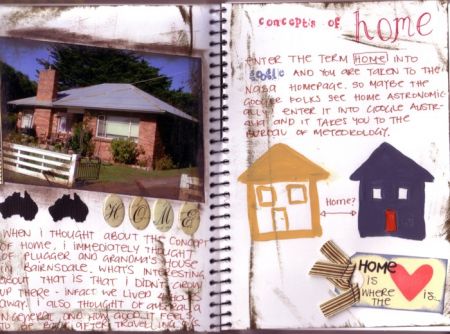 HOME
WHEN I THOUGHT ABOUT THE CONCEPT
OF HOME, I IMMEDIATELY THOUGHT
OF PLUGGER AND GRANDMA'S HOUSE
IN BAIRNSDALE. WHAT'S INTERESTING
ABOUT THAT IS THAT I DIDN'T GROW
UP THERE - INFACT WE LIVED 4 HOURS
AWAY. I ALSO THOUGHT OF AUSTRALIA
IN GENERAL AND HOW GOOD IT FEELS
TO BE BACK AFTER TRAVELLING
concepts of home
ENTER THE TERM HOME INTO
Google AND YOU ARE TAKEN TO THE
NASA HOMEPAGE. SO MAYBE THE
GOOGLE FOLKS SEE HOME ASTRONOMIC
ALLY. ENTER IT INTO GOOGLE AUSTR-
ALIA AND IT TAKES YOU TO THE
BUREAU OF METEOROLOGY.
Home?
HOME
IS
WHERE
THE
IS...